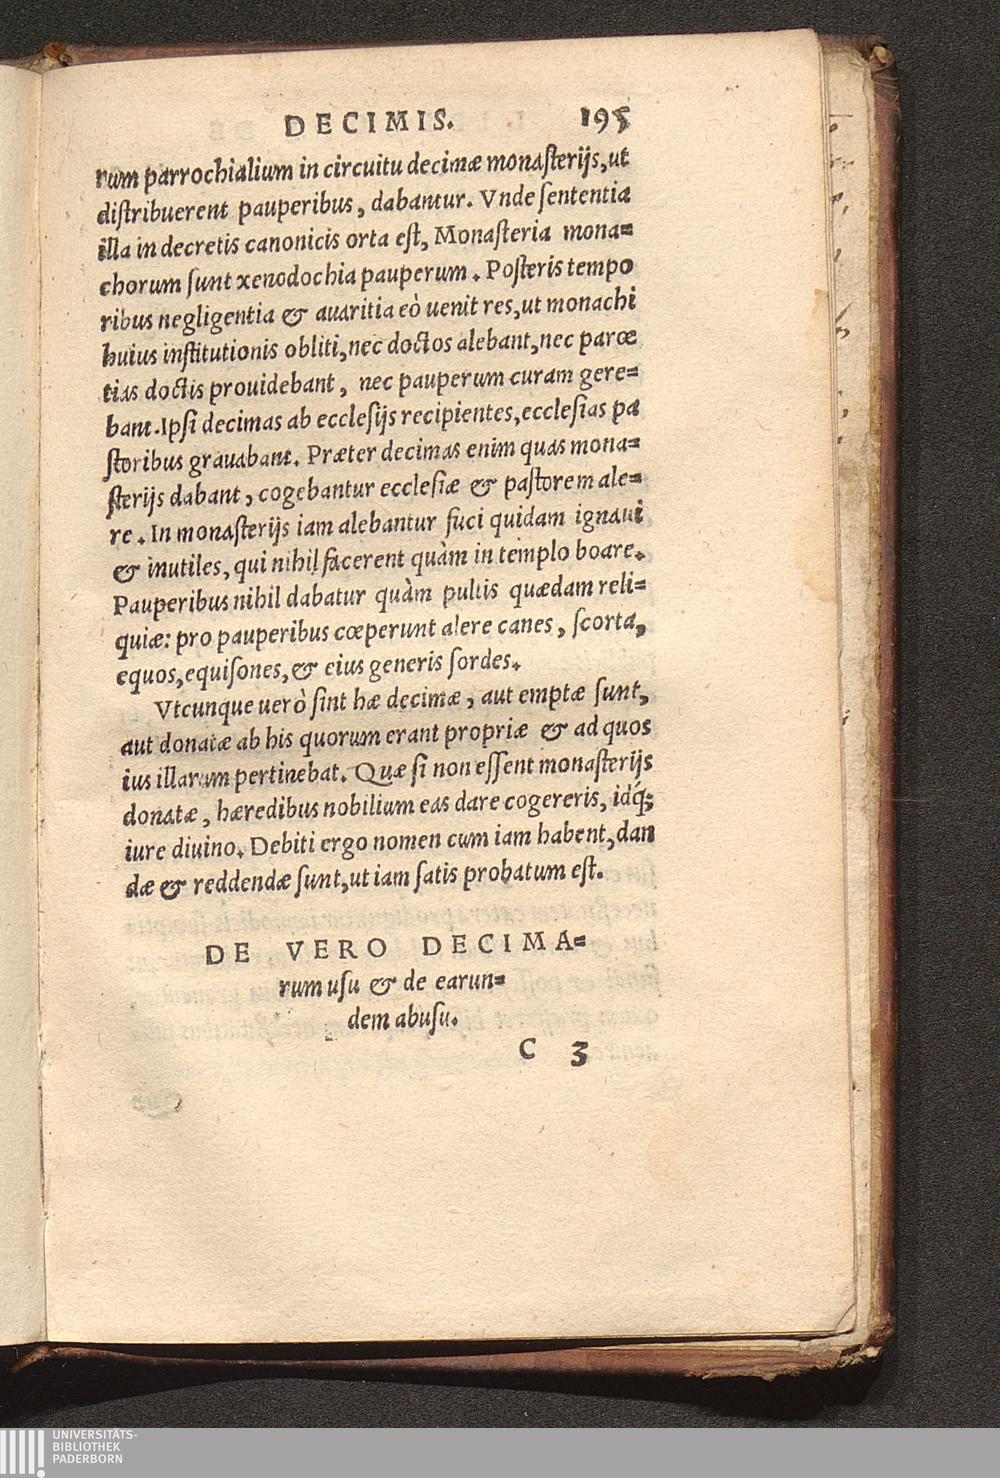 DECIMIS. 195
rum parrochialium in circuitu decimæ monaſterijs, ut
diſtribuerent pauperibus, dabantur. Vnde ſententia
illa in decretis canonicis orta eſt, Monaſteria mona=
chorum ſunt xenodochia pauperum. Poſteris tempo
ribus negligentia & auaritia eò uenit res, ut monachi
huius inſtitutionis obliti, nec doctos alebant, nec parœ
tias doctis prouidebant, nec pauperum curam gere=
bant. Ipſi decimas ab eccleſijs recipientes, eccleſias pa
ſtoribus grauabant. Præter decimas enim quas mona=
ſterijs dabant, cogebantur eccleſiæ & paſtorem ale=
re. In monaſterijs iam alebantur fuci quidam ignaui
& inutiles, qui nihil facerent quàm in templo boare.
Pauperibus nihil dabatur quàm pultis quædam reli=
quiæ: pro pauperibus cœperunt alere canes, ſcorta,
equos, equiſones, & eius generis ſordes.
Vtcunque uerò ſint hæ decimæ, aut emptæ ſunt,
aut donatæ ab his quorum erant propriæ & ad quos
ius illarum pertinebat. Quæ ſi non eſſent monaſterijs
donatæ, hæredibus nobilium eas dare cogereris, idq́;
iure diuino. Debiti ergo nomen cum iam habent, dan
dæ & reddendæ ſunt, ut iam ſatis probatum eſt.
DE VERO DECIMA=
rum uſu & de earun=
dem abuſu.
C 3
UNIVERSITÄTS-
BIBLIOTHEK
PADERBORN